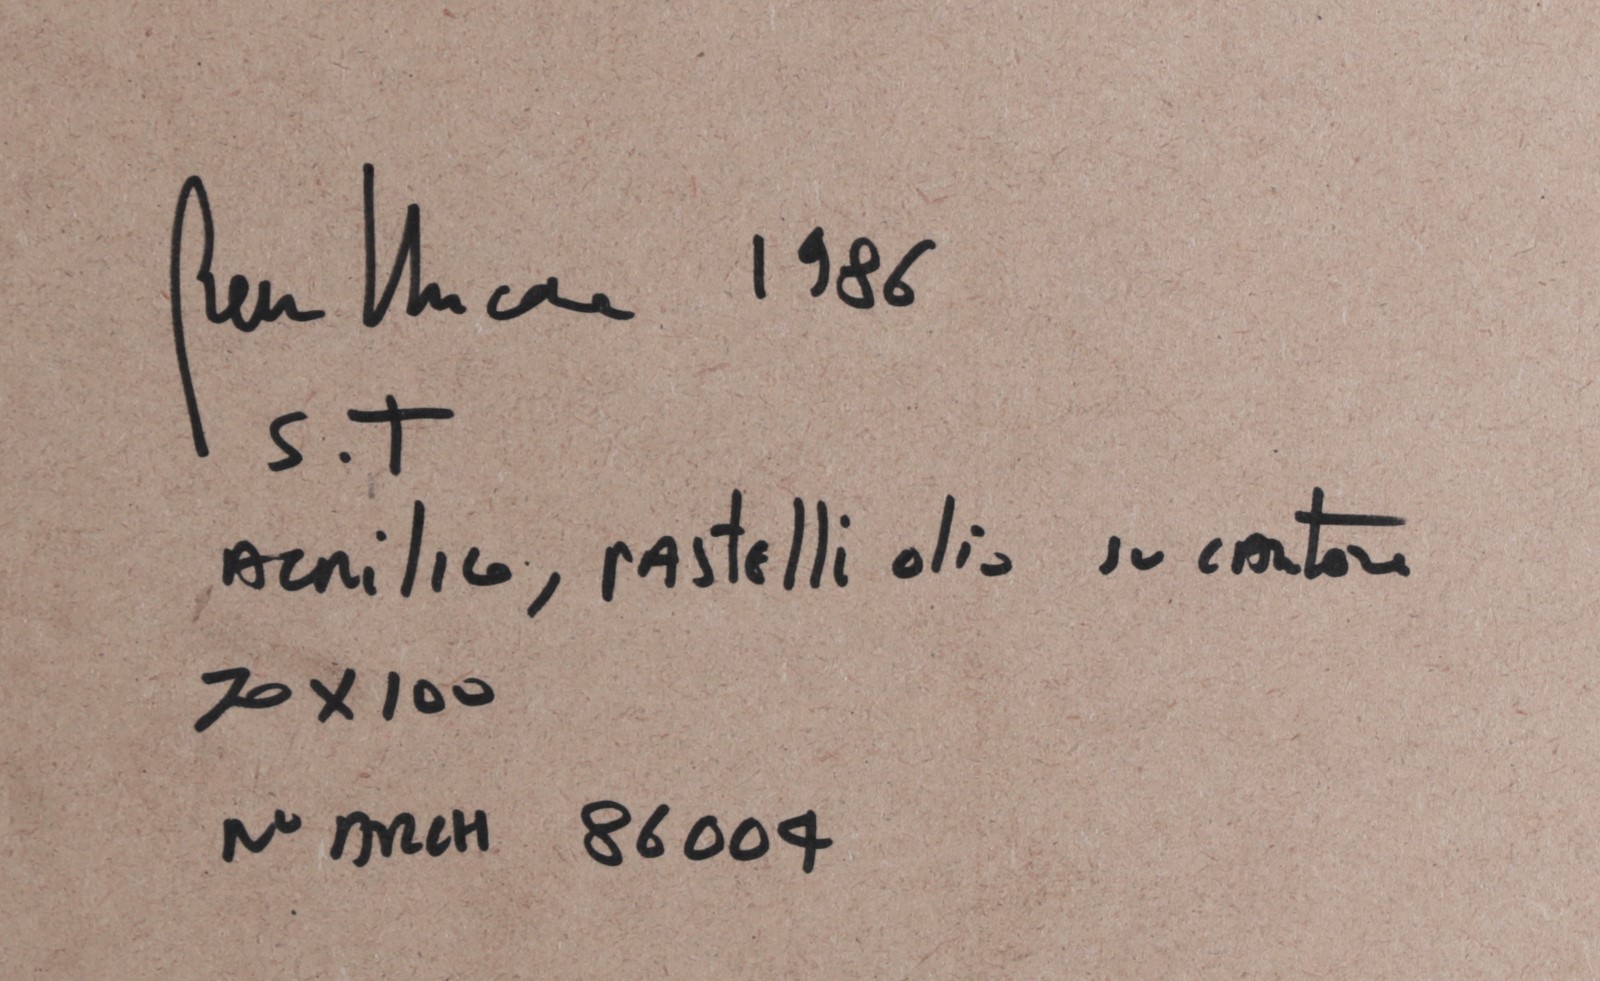 1986
S.T
ACRILICO, PASTELLI OLIO SU CARTONE
70 X 100
N° ARCH 86004